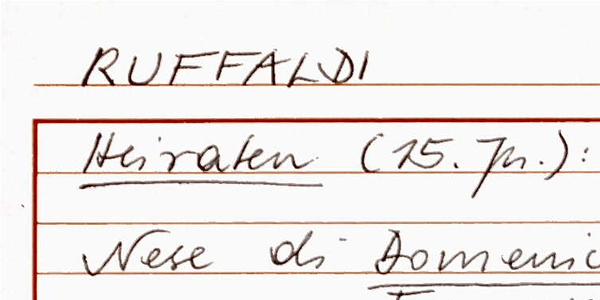 RUFFALDI
Heiraten (15. Jh.):
Nese di Domenic